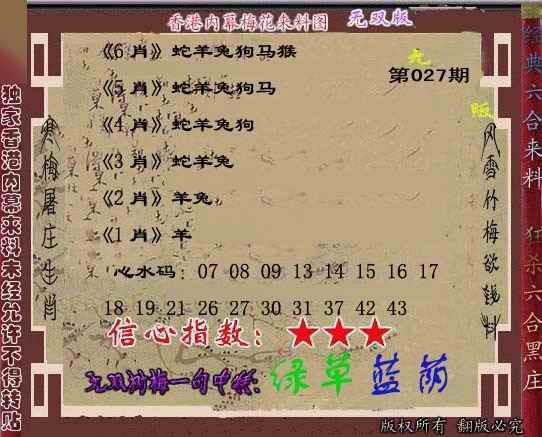 香港内幕梅花来料图 无双版
《6 肖》蛇羊兔狗马猴
无
第027期
《5 肖》蛇羊兔狗马
版
《4 肖》蛇羊兔狗
《3 肖》蛇羊兔
《2 肖》羊兔
《1 肖》羊
心水码：07 08 09 13 14 15 16 17
18 19 21 26 27 30 31 37 42 43
信心指数：★★★
绿草蓝荫
独家香港内幕来料未经允许不得转贴
寒梅屠庄生肖
风雪竹梅欲钱料
经典六合来料
狂杀六合黑庄
版权所有 翻版必究